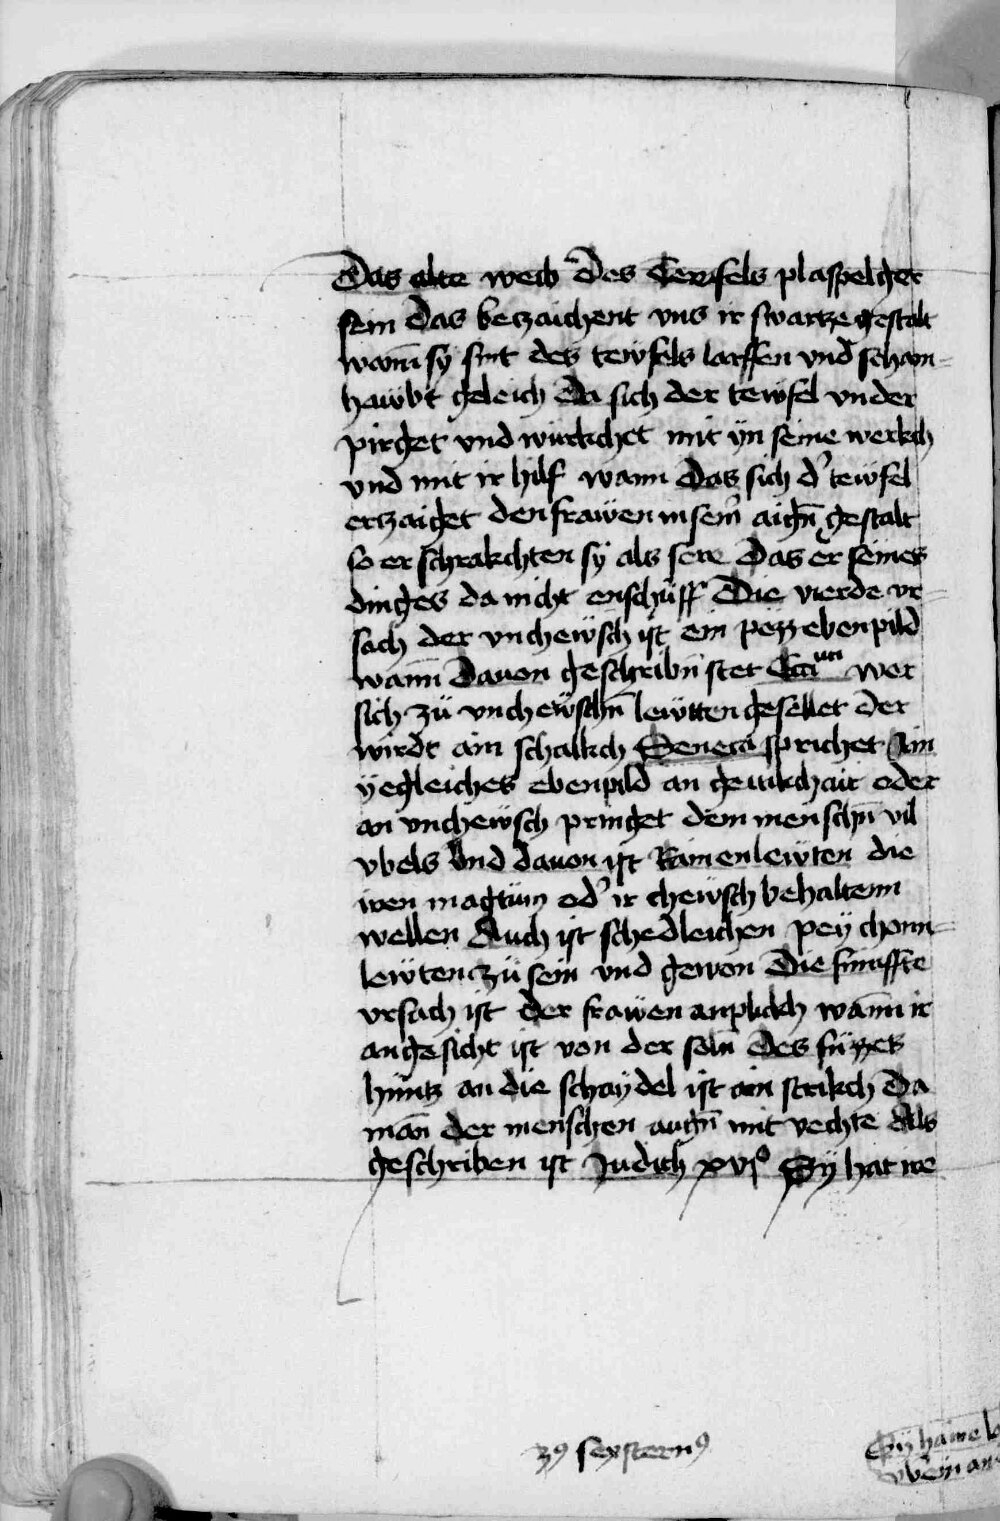 Das alte weib Des Tewfels plaspelger
sein Das betzaichent vns ir swartze gestalt
wann̄ sy sint des tewfels laruen vnd scham-
hawbt geleich Da sich der tewfel vnder
pirget vnd würkchet mit yn seine werkch
vnd mit ir hilf wann Das sich d' tewfel
ertzaiget den frawen in sein̄ aign̄ gestalt
so er schrakchten sy als sere Das er seines
dinges da nicht enschüff Die vierde vr-
sach der vnchewsch ist ein pözz ebenpild
wann̄ Dauon geschribn̄ stet wer
sich zü vnchewschn̄ lewtten gesellet der
wirdt ain schalkch Seneca sprichet Ain
yegleiches ebenpild an geitikchait oder
an vnchewsch pringet dem menschn̄ vil
vbels Vnd dauon ist kainen lewten die
iren magtum od' ir chewsch behaltenn
wellen Auch ist schedleichen pey chonn-
lewten zü sein vnd gewon Die fünffte
vrsach ist der frawen anplikch wann̄ ir
angesicht ist von der soln̄ des füzzes
hüntz an die schaydel ist ain strikch Da
man der menschen augn̄ mit vechte Als
geschriben ist Judich xvjº Sy hat ire
3⁹ sexstern⁹